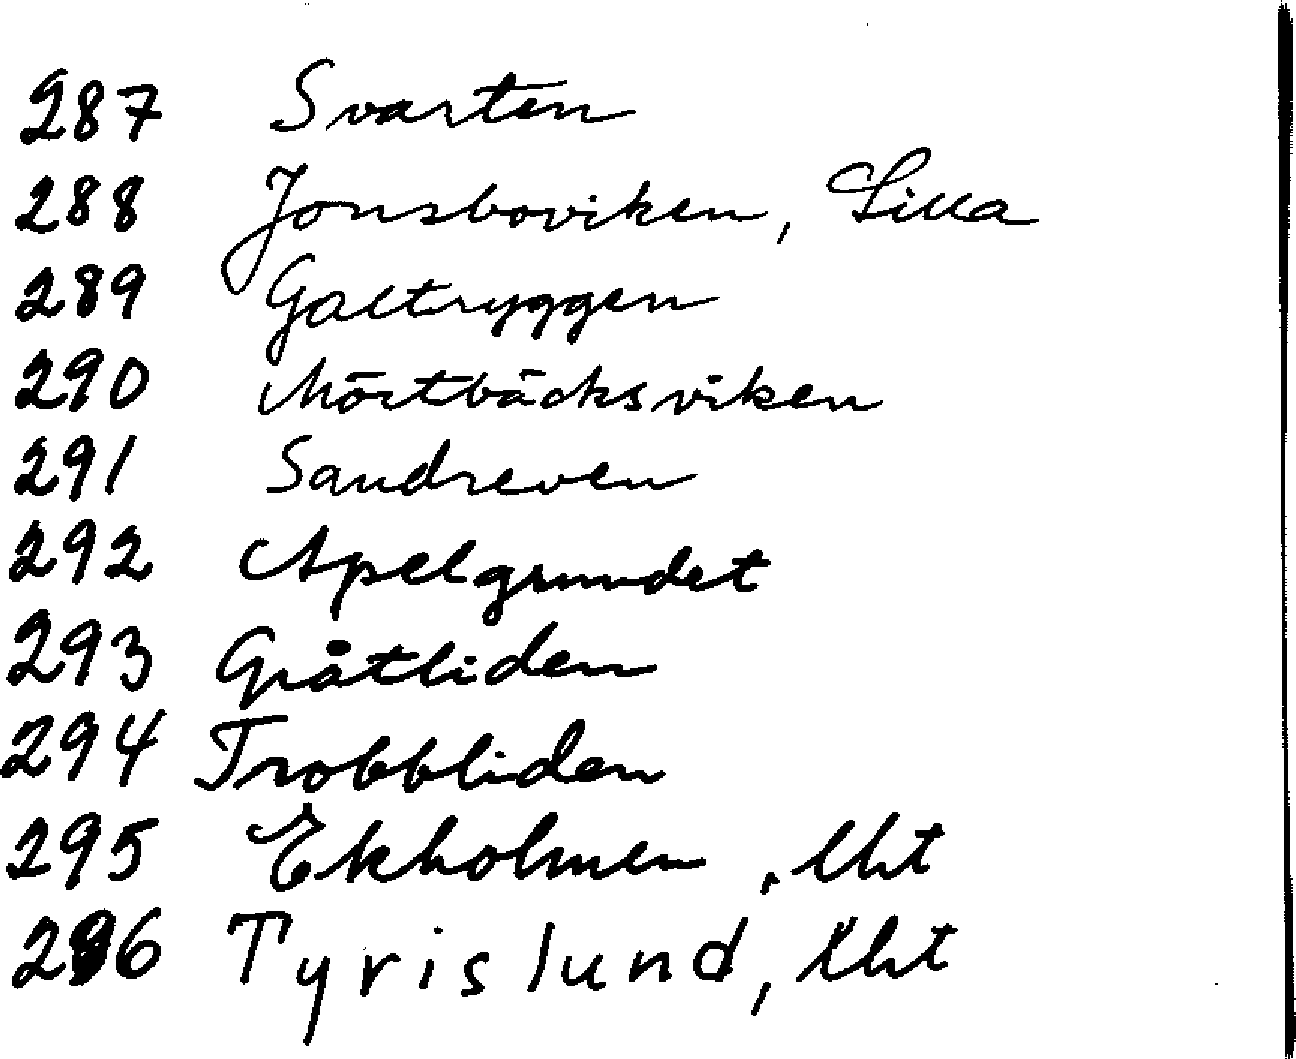 287 Svarten
288 Jonsboviken, Lilla
289 Galtryggen
290 Mörtbäcksviken
291 Sandreven
292 Apelgrundet
293 Gråtliden
294 Trobbliden
295 Ekholmen, lht
296 Tyrislund, lht